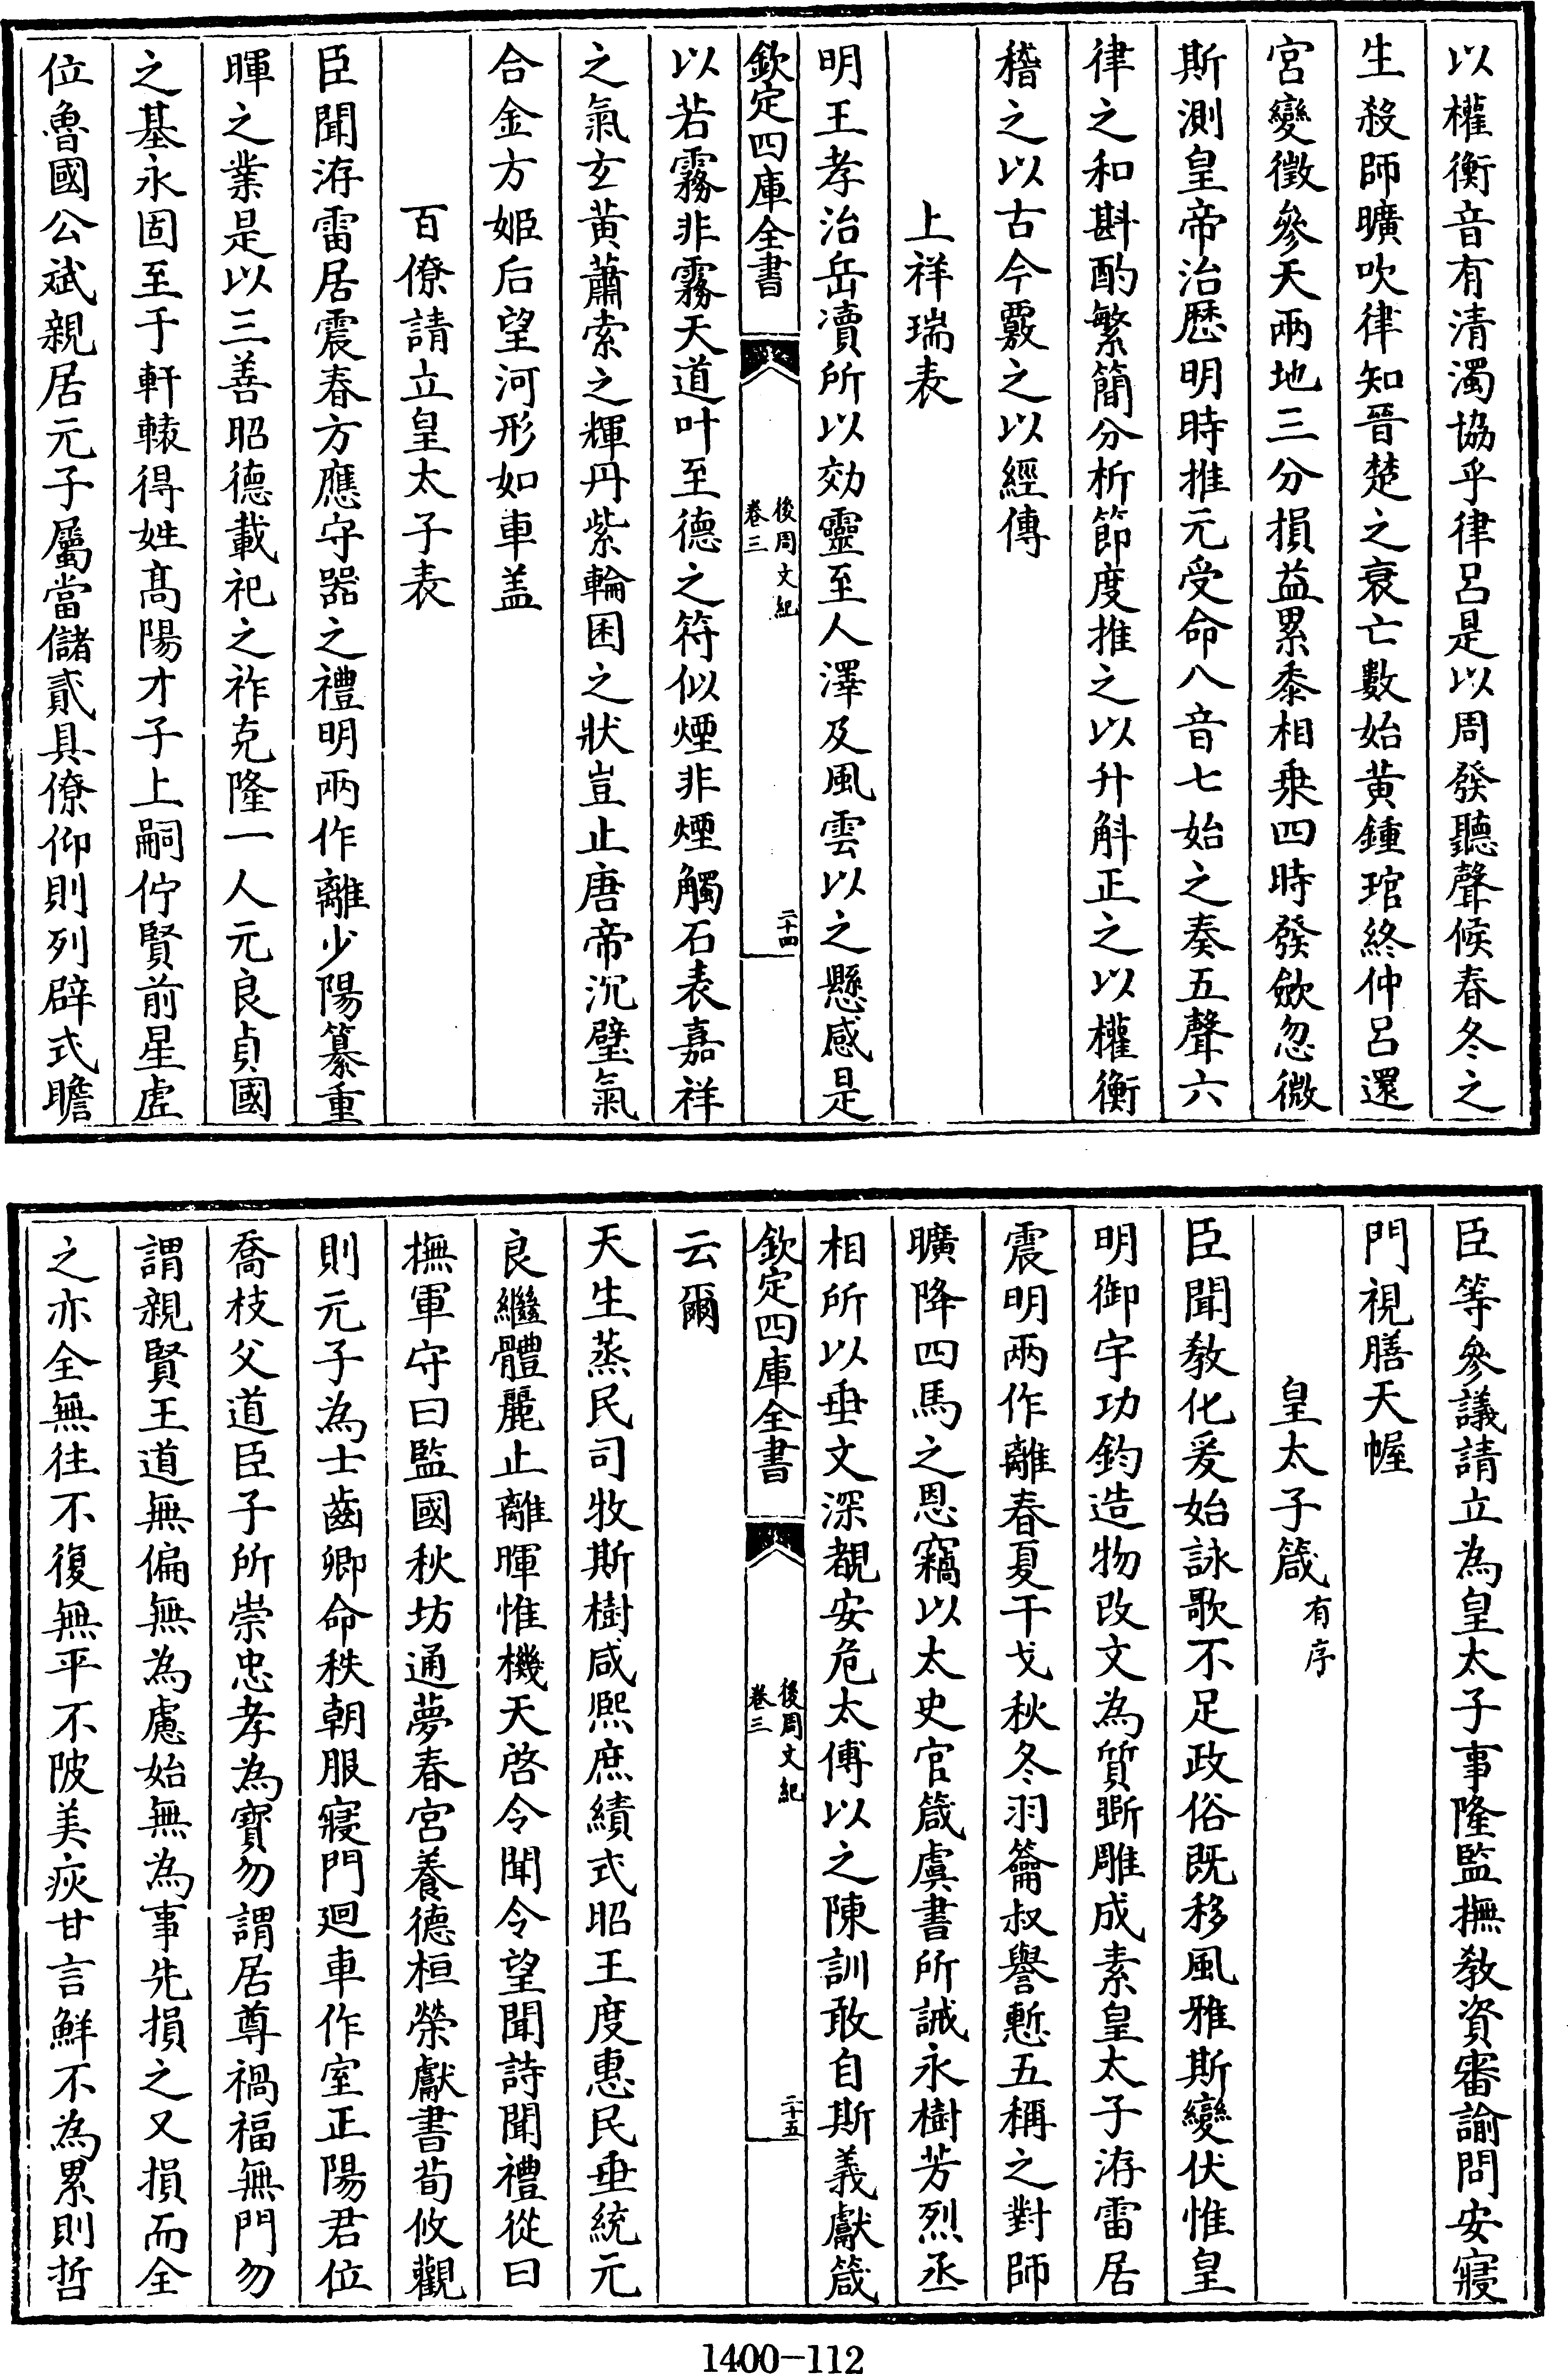 以權衡音有清濁協乎律呂是以周發聽聲候春冬之
生殺師曠吹律知晉楚之衰亡數始黃鍾琯終仲呂還
宮變徵參天兩地三分損益累黍相乗四時發歛忽微
斯測皇帝治厯明時推元受命八音七始之奏五聲六
律之和斟酌繁簡分析節度推之以升斛正之以權衡
稽之以古今覈之以經傳
上祥瑞表
明王孝治岳瀆所以効靈至人澤及風雲以之懸感是
欽定四庫全書
後周文紀
卷三
二十四
以若霧非霧天道叶至德之符似煙非煙觸石表嘉祥
之氣玄黃蕭索之輝丹紫輪囷之狀豈止唐帝沉璧氣
合金方姬后望河形如車盖
百僚請立皇太子表
臣聞洊雷居震春方應守器之禮明兩作離少陽纂重
暉之業是以三善昭德載祀之祚克隆一人元良貞國
之基永固至于軒轅得姓髙陽才子上嗣佇賢前星虛
位魯國公斌親居元子屬當儲貳具僚仰則列辟式瞻
臣等參議請立為皇太子事隆監撫敎資審諭問安寢
門視膳天幄
皇太子箴有序
臣聞敎化爰始詠歌不足政俗既移風雅斯變伏惟皇
明御宇功鈞造物改文為質斲雕成素皇太子洊雷居
震明兩作離春夏干戈秋冬羽籥叔譽慙五稱之對師
曠降四馬之恩竊以太史官箴虞書所誡永樹芳烈丞
相所以垂文深覩安危太傅以之陳訓敢自斯義獻箴
欽定四庫全書
後周文紀
卷三
二十五
云爾
天生蒸民司牧斯樹咸熈庶績式昭王度惠民垂統元
良繼體麗止離暉惟機天啓令聞令望聞詩聞禮從曰
撫軍守曰監國秋坊通夢春宮養德桓榮獻書荀攸觀
則元子為士齒卿命秩朝服寢門迴車作室正陽君位
喬枝父道臣子所崇忠孝為寳勿謂居尊禍福無門勿
謂親賢王道無偏無為慮始無為事先損之又損而全
之亦全無往不復無平不陂美疢甘言鮮不為累則哲
1400-112